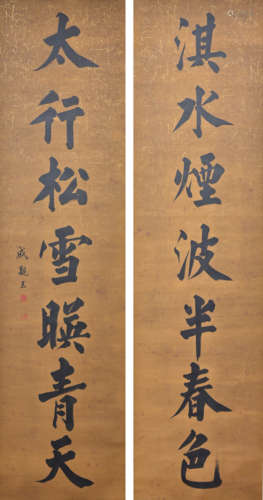 淇水煙波半春色
太行松雪暎青天